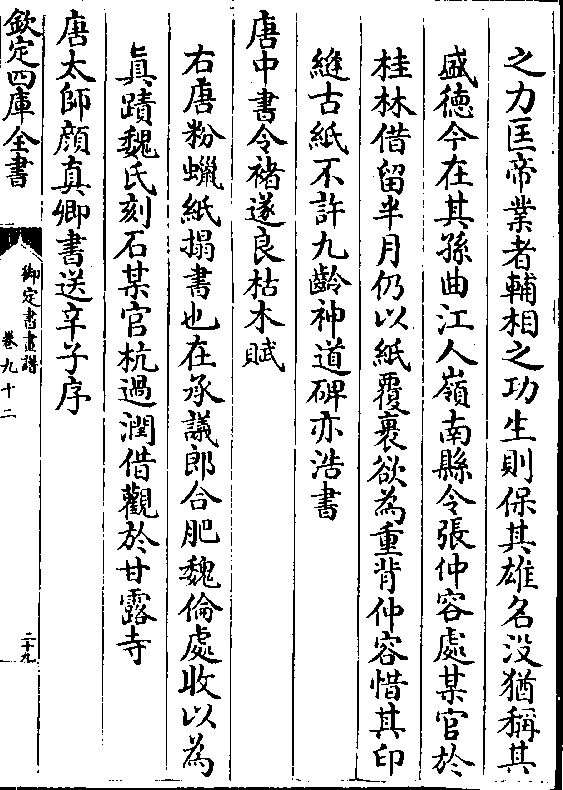 之力匡帝業者輔相之功生則保其雄名没猶稱其
盛徳今在其孫曲江人嶺南縣令張仲容處某官於
桂林借留半月仍以紙覆裹欲為重背仲容惜其印
縫古紙不許九齡神道碑亦浩書
唐中書令褚遂良枯木賦
右唐粉蠟紙搨書也在承議郎合肥魏倫處收以為
真蹟魏氏刻石某官杭過潤借觀於甘露寺
唐太師顔真卿書送辛子序
欽定四庫全書
御定書畫譜
卷九十二
二十九